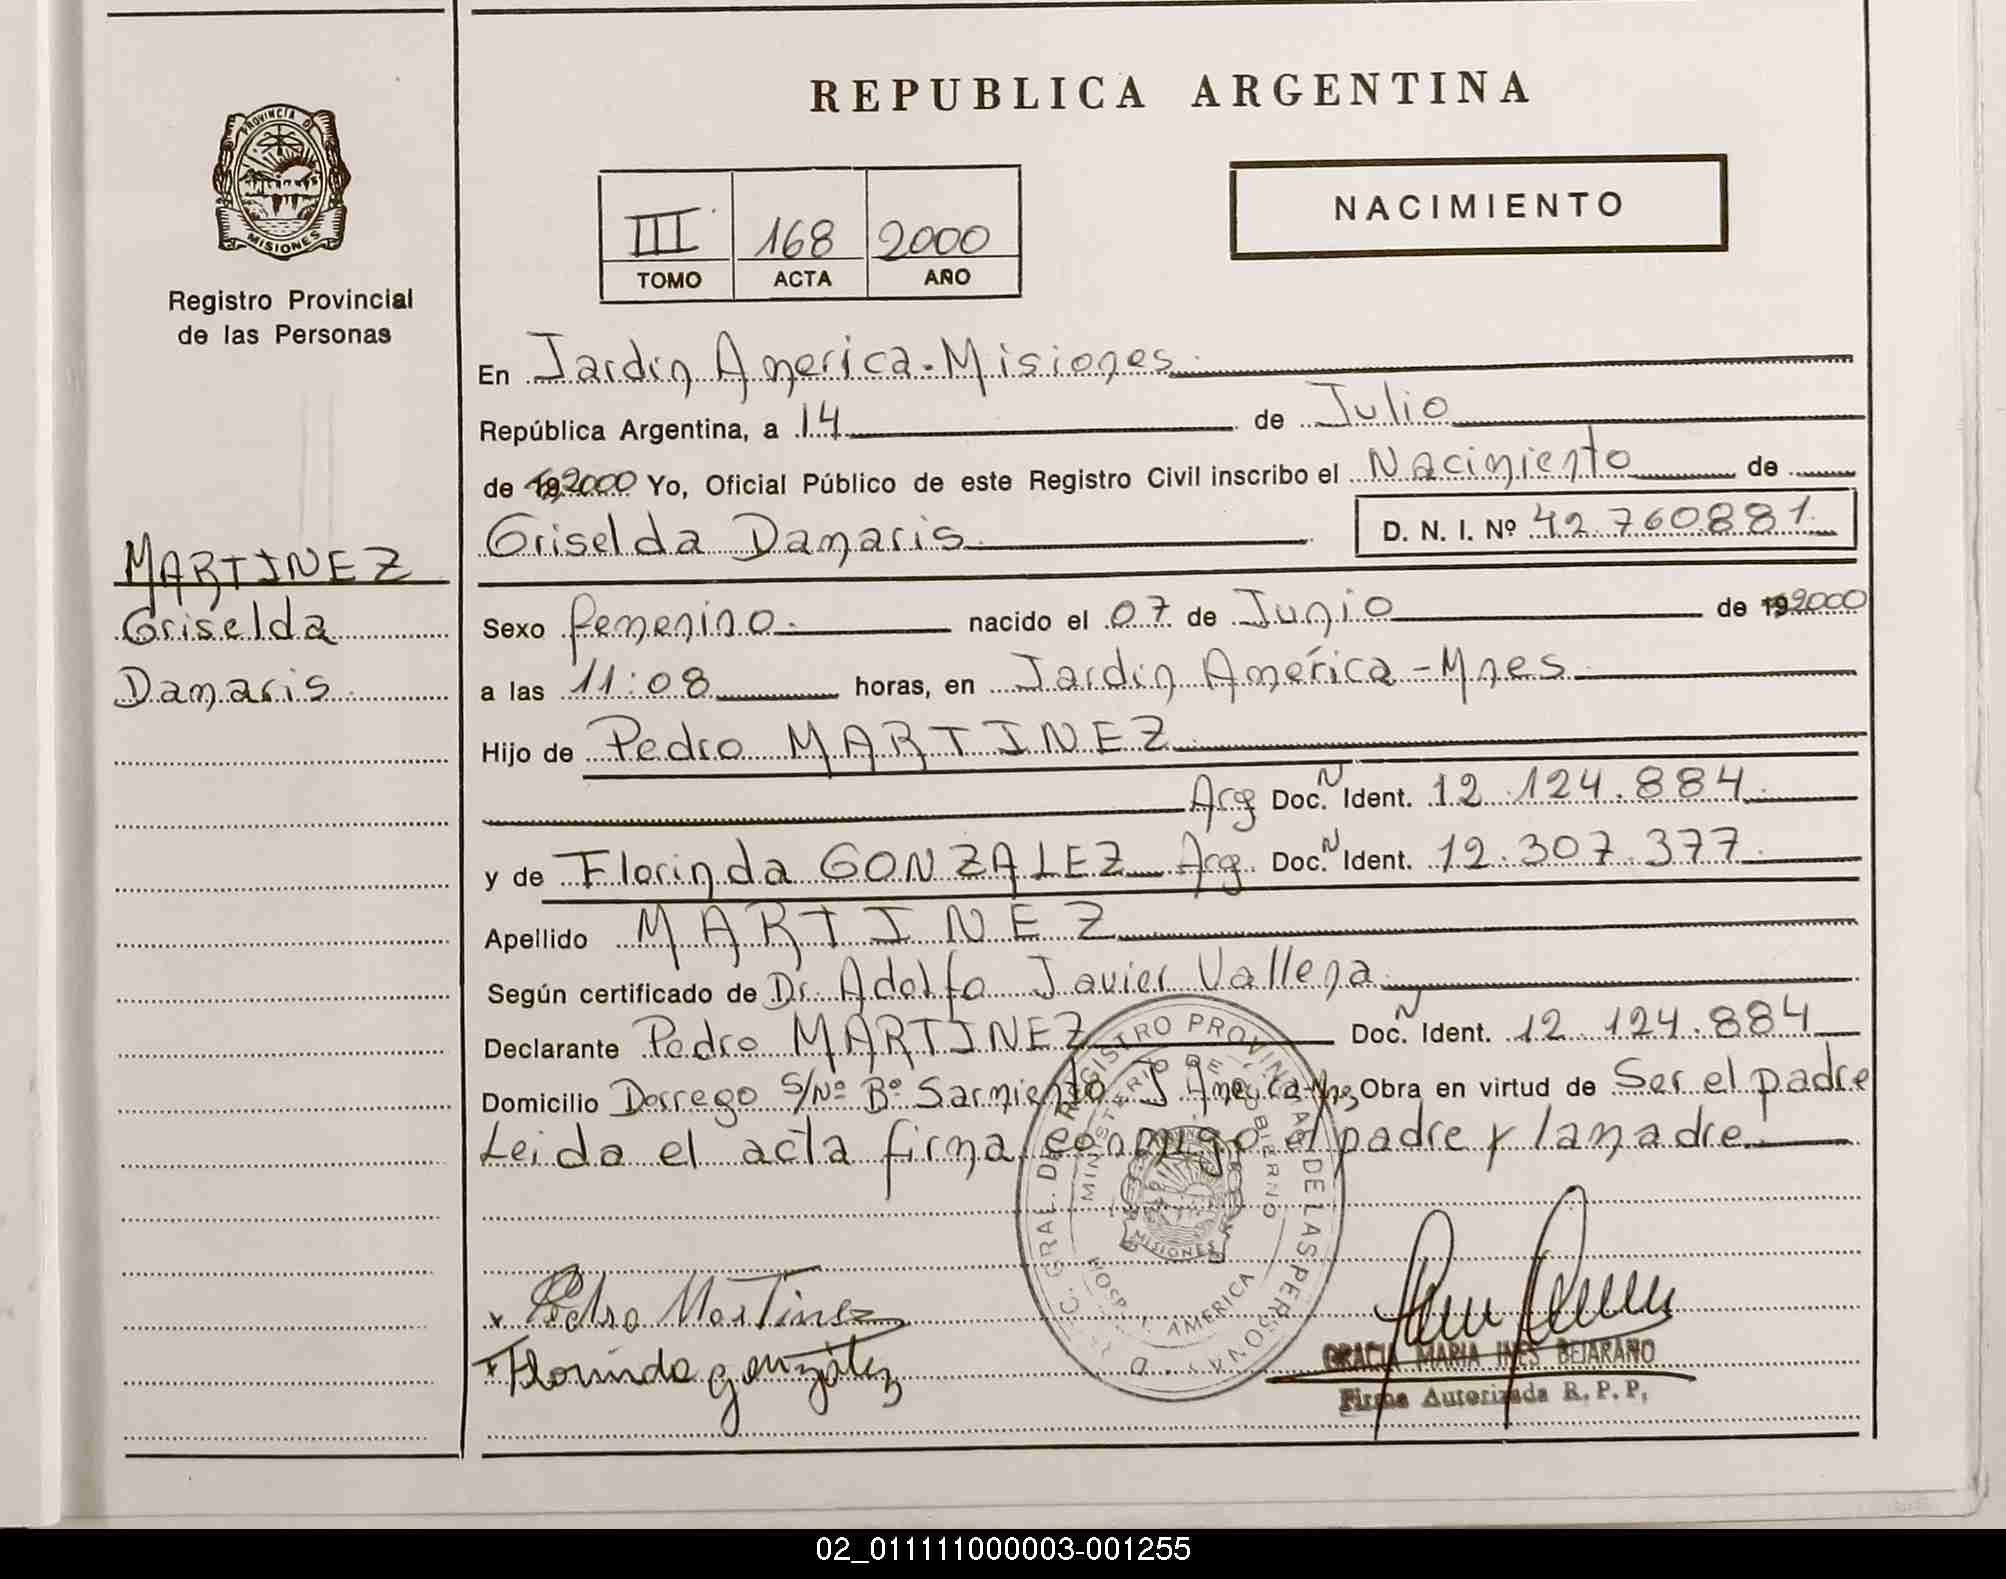 REPUBLICA ARGENTINA
PROVINCIA DE
MISIONES
Registro Provincial
de las Personas
III 168 2000
TOMO ACTA AÑO
NACIMIENTO
MARTINEZ
Griselda
Damaris
En Jardin America - Misiones
República Argentina, a 14 de Julio
de 192000 Yo, Oficial Público de este Registro Civil inscribo el Nacimiento de
Griselda Damaris D. N. I. Nº 42.760881
Sexo femenino nacido el 07 de Junio de 192000
a las 11:08 horas, en Jardin América - Mnes
Hijo de Pedro MARTINEZ
Arg Doc. N Ident. 12.124.884
y de Florinda GONZALEZ Arg. Doc. N Ident. 12.307.377
Apellido MARTINEZ
Según certificado de Dr. Adolfo Javier Vallena
Declarante Pedro MARTINEZ Doc. N Ident. 12.124.884
Domicilio Dorrego S/Nº Bº Sarmiento J America - Mnes Obra en virtud de Ser el padre
Leida el acta firma conmigo el padre y la madre
REGISTRO PROVINCIAL DE LAS PERSONAS
MINISTERIO DE GOBIERNO
MISIONES
HOSP. J. AMERICA
x Pedro Martinez
x Florinda gonzález
GRACIA MARIA INES BEJARANO
Firma Autorizada R. P. P.
02_011111000003-001255